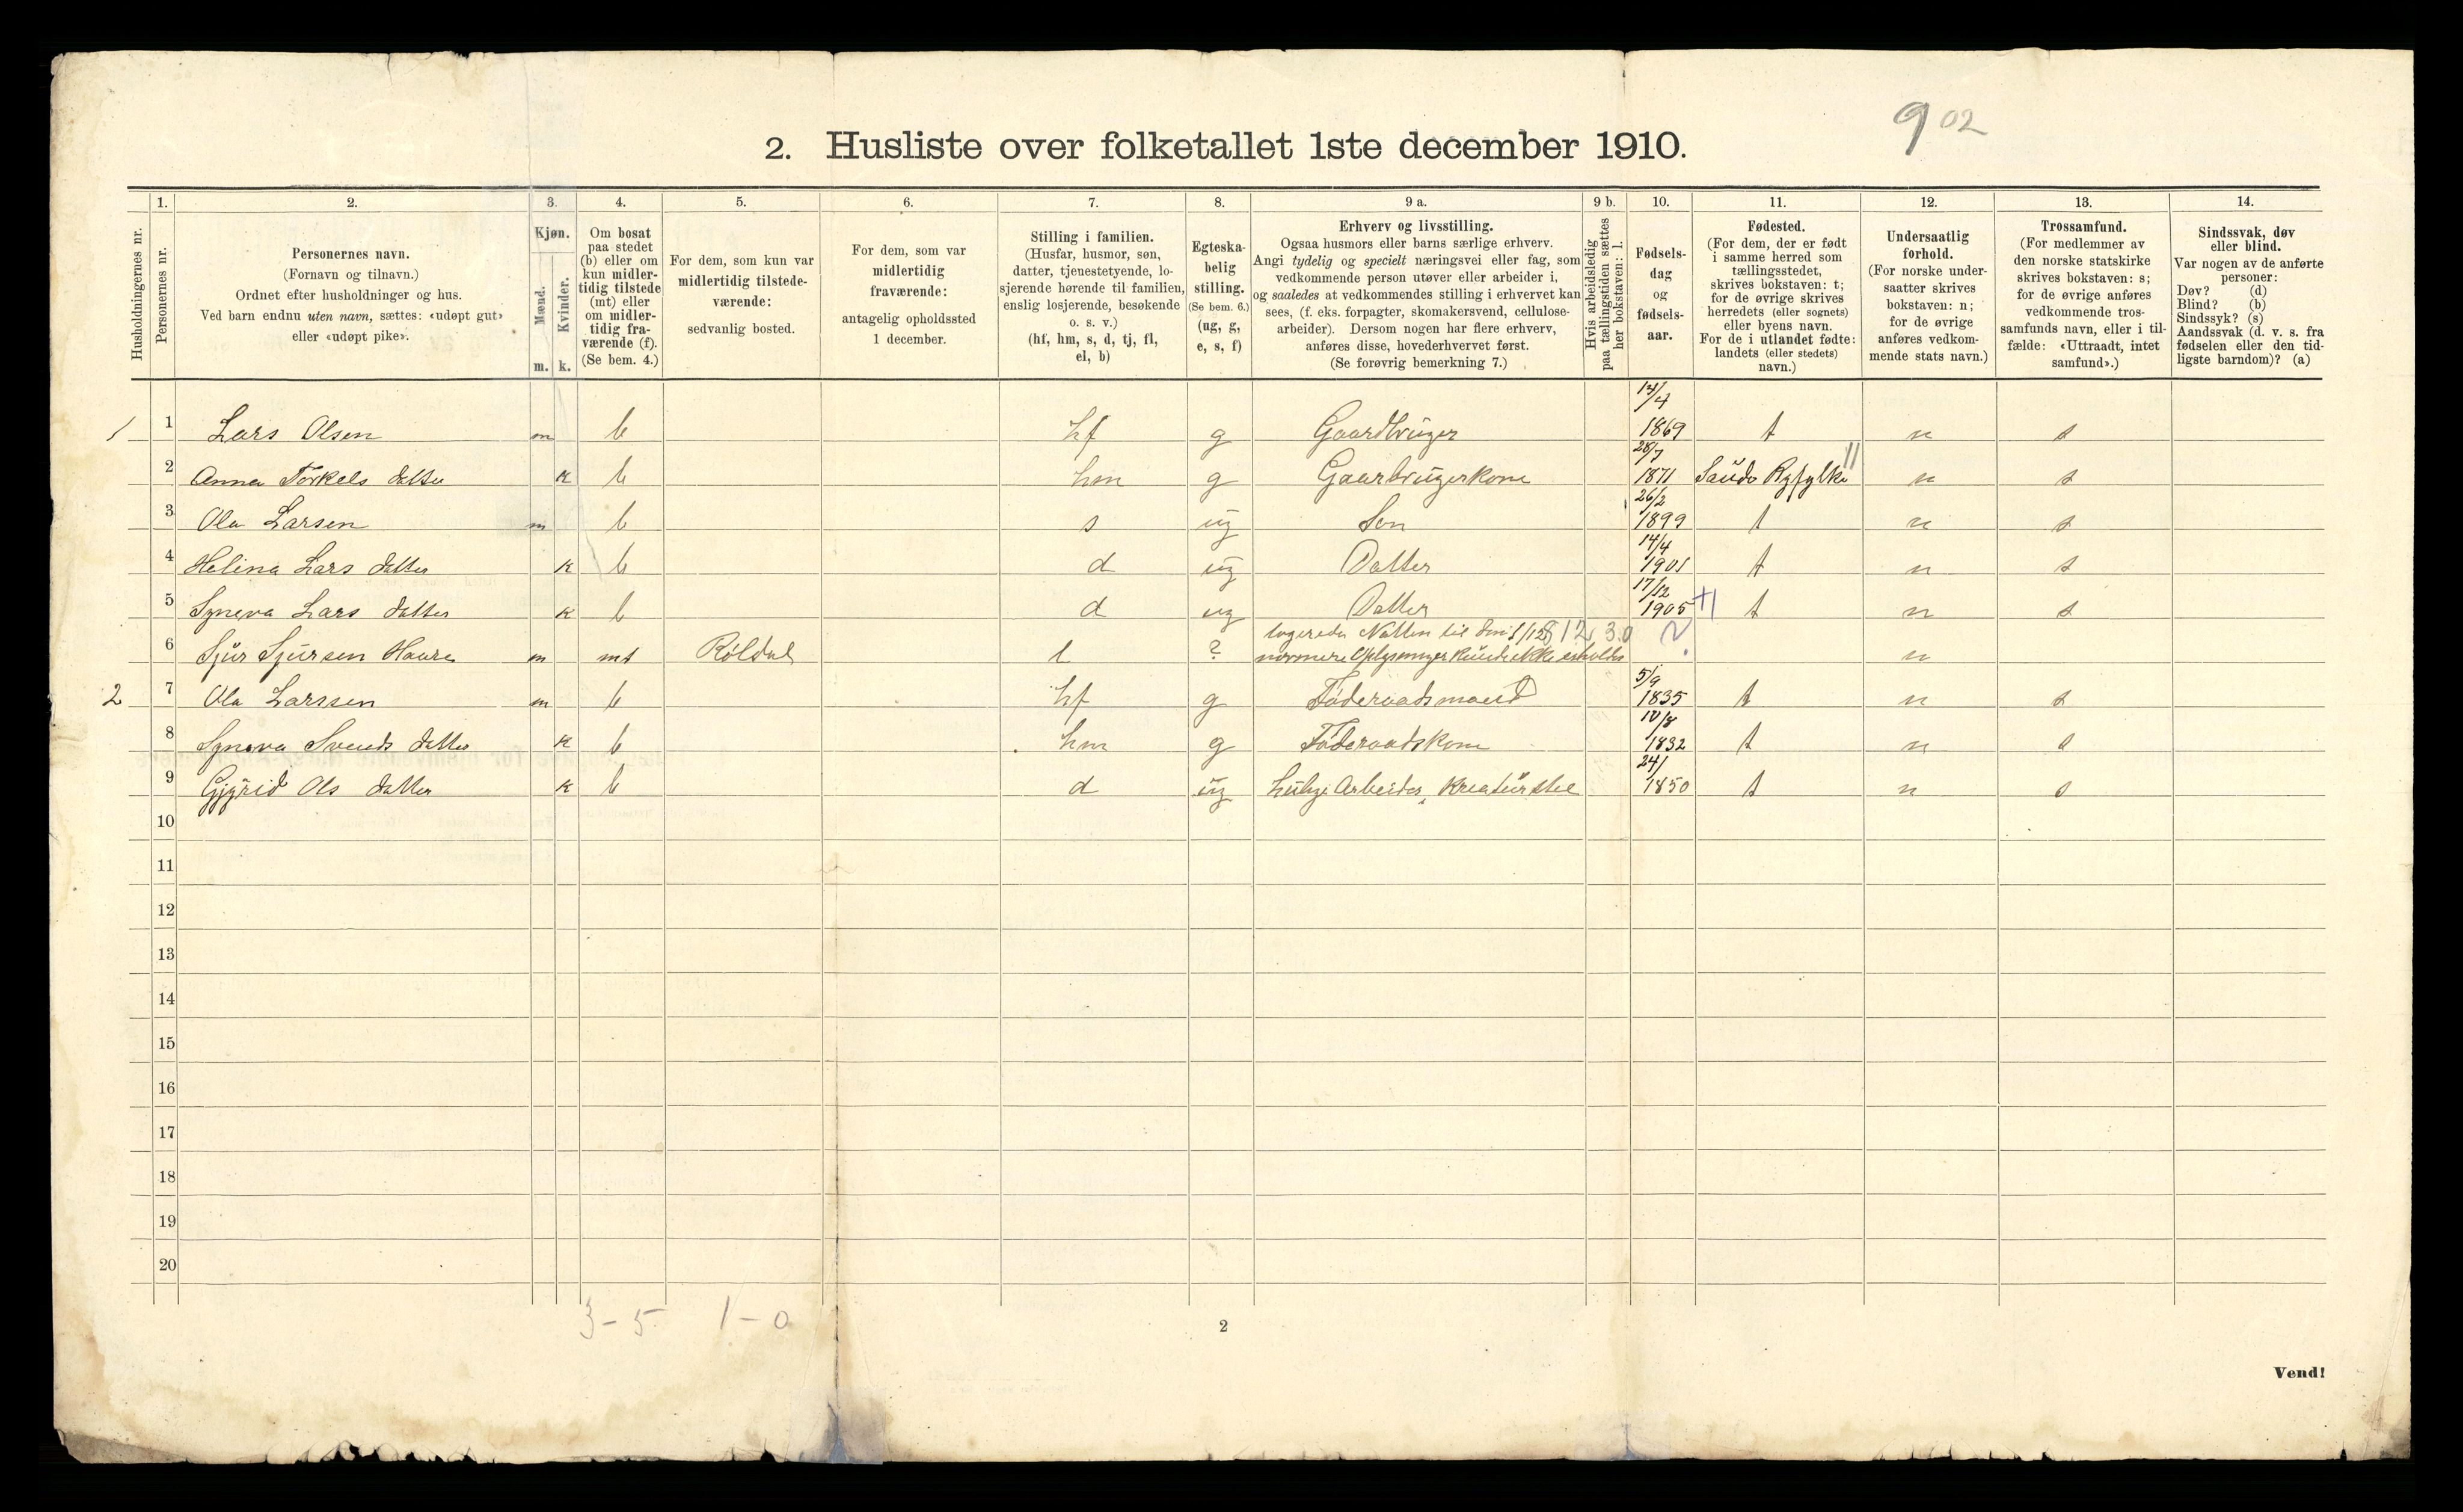 902
2. Husliste over folketallet 1ste december 1910.
Husholdningernes nr.
1.
Personernes nr.
2.
Personernes navn.
(Fornavn og tilnavn.)
Ordnet efter husholdninger og hus.
Ved barn endnu uten navn, sættes: «udøpt gut»
eller «udøpt pike».
3.
Kjøn.
Mænd.
Kvinder.
m. k.
4.
Om bosat
paa stedet
(b) eller om
kun midler-
tidig tilstede
(mt) eller
om midler-
tidig fra-
værende (f).
(Se bem. 4.)
5.
For dem, som kun var
midlertidig tilstede-
værende:
sedvanlig bosted.
6.
For dem, som var
midlertidig
fraværende:
antagelig opholdssted
1 december.
7.
Stilling i familien.
(Husfar, husmor, søn,
datter, tjenestetyende, lo-
sjerende hørende til familien,
enslig losjerende, besøkende
o. s. v.)
(hf, hm, s, d, tj, fl,
el, b)
8.
Egteska-
belig
stilling.
(Se bem. 6.)
(ug, g,
e, s, f)
9 a.
Erhverv og livsstilling.
Ogsaa husmors eller barns særlige erhverv.
Angi tydelig og specielt næringsvei eller fag, som
vedkommende person utøver eller arbeider i,
og saaledes at vedkommendes stilling i erhvervet kan
sees, (f. eks. forpagter, skomakersvend, cellulose-
arbeider). Dersom nogen har flere erhverv,
anføres disse, hovederhvervet først.
(Se forøvrig bemerkning 7.)
9 b.
Hvis arbeidsledig
paa tællingstiden sættes
her bokstaven: l.
10.
Fødsels-
dag
og
fødsels-
aar.
11.
Fødested.
(For dem, der er født
i samme herred som
tællingsstedet,
skrives bokstaven: t;
for de øvrige skrives
herredets (eller sognets)
eller byens navn.
For de i utlandet fødte:
landets (eller stedets)
navn.)
12.
Undersaatlig
forhold.
(For norske under-
saatter skrives
bokstaven: n;
for de øvrige
anføres vedkom-
mende stats navn.)
13.
Trossamfund.
(For medlemmer av
den norske statskirke
skrives bokstaven: s;
for de øvrige anføres
vedkommende tros-
samfunds navn, eller i til-
fælde: «Uttraadt, intet
samfund».)
14.
Sindssvak, døv
eller blind.
Var nogen av de anførte
personer:
Døv? (d)
Blind? (b)
Sindssyk? (s)
Aandssvak (d. v. s. fra
fødselen eller den tid-
ligste barndom)? (a)
1 1 Lars Olsen m b hf g Gaardbruger 14/4 1869 t n s
2 Anna Torkels datter k b hm g Gaarbrugerkone 28/7 1871 Saude Ryfylke 11 n s
3 Ola Larsen m b s ug Søn 26/2 1899 t n s
4 Helina Lars datter k b d ug Datter 14/4 1901 t n s
5 Syneva Lars datter k b d ug Datter 17/12 1905 t n s
6 Sjur Sjursen Haare m mt Röldal l ? logerede Natten til den 1/12
nærmere Oplysninger kunde ikke erholdes ? n
2 7 Ola Larssen m b hf g Föderaadsmand 5/9 1835 t n s
8 Syneva Svends datter k b hm g Föderaadskone 10/8 1832 t n s
9 Gjyrid Ols datter k b d ug Kreaturstel 24/ 1850 t n s
10
11
12
13
14
15
16
17
18
19
20
3 - 5 1 - 0
2
Vend!